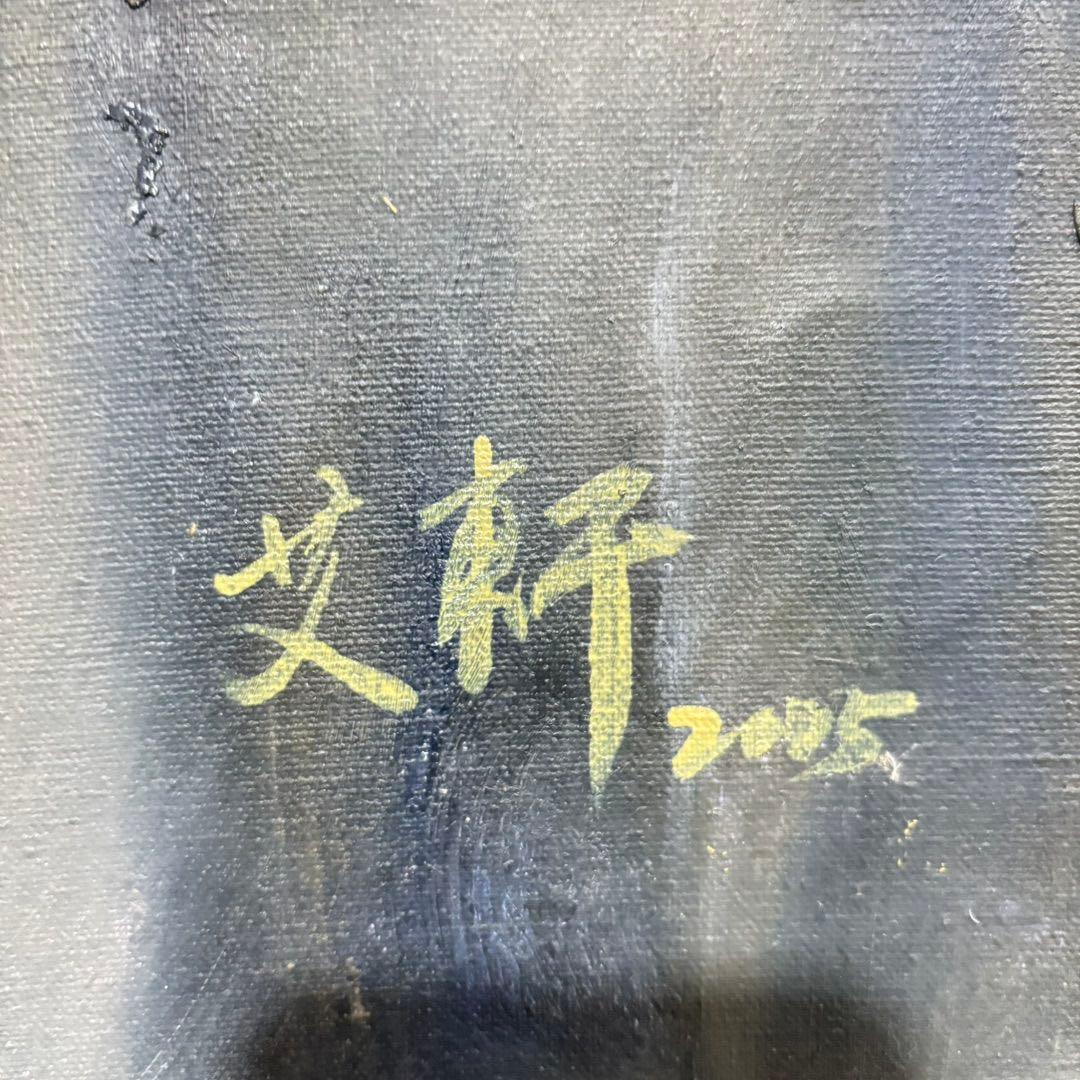 艾軒
2005